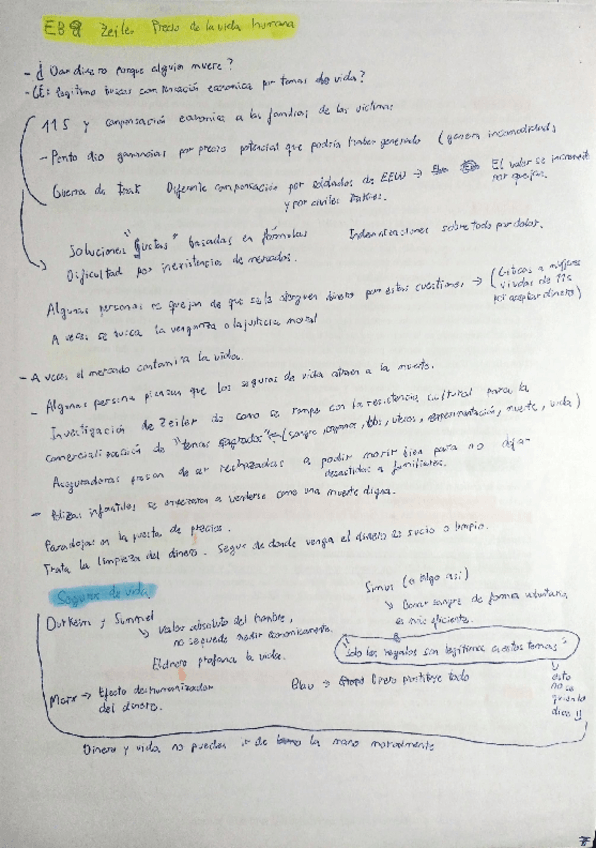 EB8 Zeiler Precio de la vida humana
- ¿Dar dinero porque alguien muere?
- ¿Es legítimo buscar compensación económica por temas de vida?
11S y compensación económica a las familias de las víctimas
- Pento dio ganancias por precio potencial que podría haber generado (genera incomodidad)
Guerra de Irak Diferente compensación por soldados de EEUU → El valor se incrementa
y por civiles Irakíes. por quejas.
Soluciones "justas" basadas en fórmulas Indemnizaciones sobre todo por dolor.
Dificultad por inexistencias de mercados.
Algunas personas se quejan de que se le otorguen dinero por estas cuestiones → (Críticas a mujeres
viudas de 11s
por aceptar dinero)
A veces se busca la venganza o la justicia moral
- A veces el mercado contamina la vida.
- Algunas persona piensan que los seguros de vida atraen a la muerte.
Investigación de Zeiler de como se rompe con la resistencia cultural para la
comercialización de "temas sagrados" (sangre, órganos, úteros, muerte, vida)
Aseguradoras pasan de ser rechazadas a poder morir bien para no deja-
desasistidos a familiares.
- Polizas infantiles se empezaron a venderse como una muerte digna.
Paradojas en la puesta de precios.
Trata la limpieza del dinero. Segun de donde venga el dinero es sucio o limpio.
Seguros de vida
Simus (o algo así)
Durkeim y Simmel ↘ Donar sangre de forma voluntaria
↘ Valor absoluto del hombre, es más eficiente.
no se puede medir economicamente.
El dinero profana la vida. "Solo los regalos son legítimos en estos temas"
Marx → Efecto deshumanizador Blau → Dinero prostituye todo
del dinero.
esto
no se
quien lo
dice !!
Dinero y vida no pueden ir de la mano moralmente